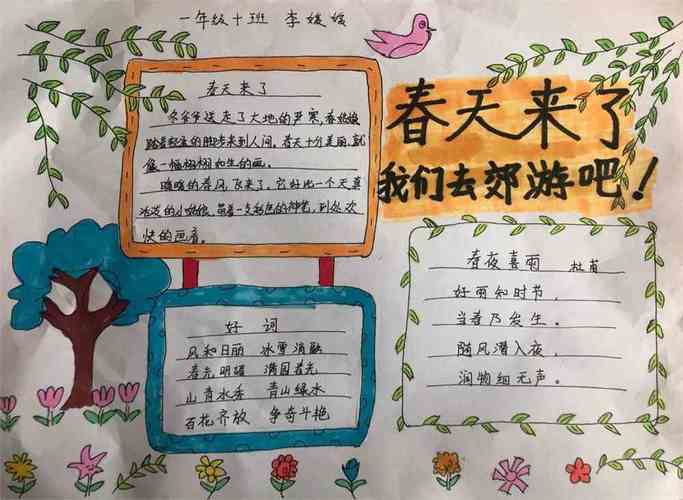 一年级十班 李媛媛
春天来了
我们去郊游吧！
春天来了
冬爷爷送走了大地的严寒,春姑娘
踏着轻盈的脚步来到人间。春天十分美丽,就
像一幅栩栩如生的画。
暖暖的春风飞来了,它好比一个天真
活泼的小姑娘,带着一支彩色的神笔,到处欢
快的画着。
好词
风和日丽 冰雪消融
春光明媚 满园春光
山青水秀 青山绿水
百花齐放 争奇斗艳
春夜喜雨 杜甫
好雨知时节,
当春乃发生。
随风潜入夜,
润物细无声。